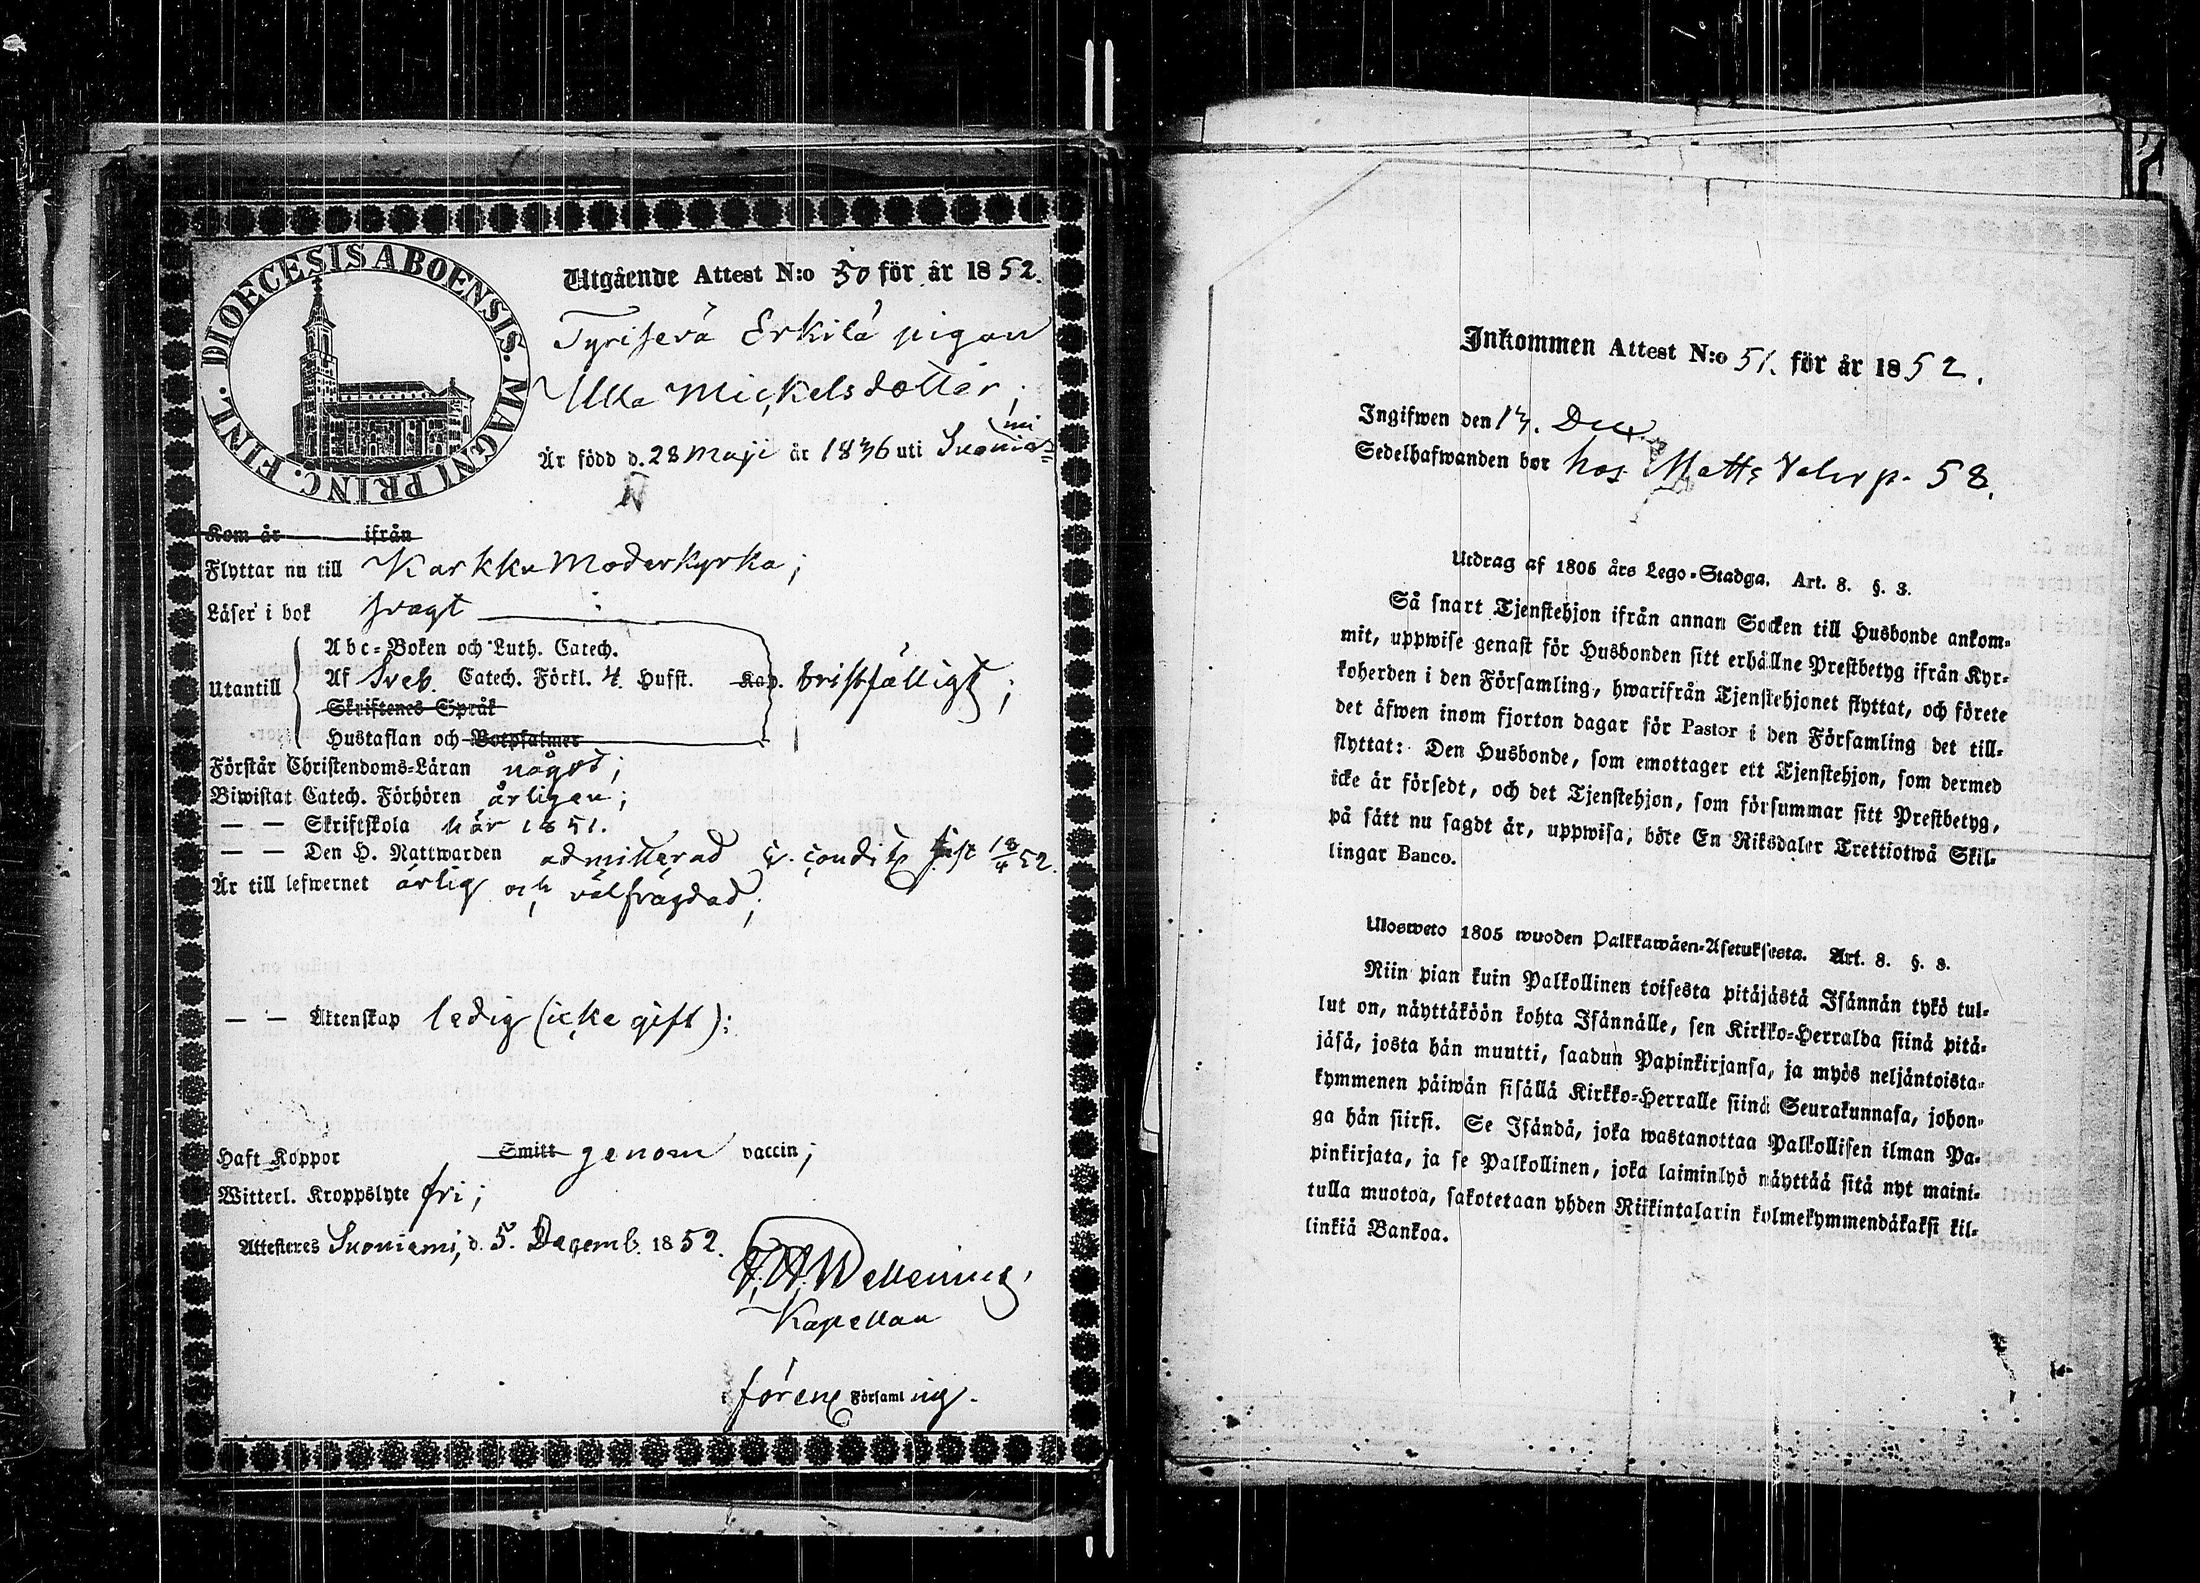 DIOECESIS ABOENSIS. MAGNI PRINC. FINL.
Utgående Attest N:o 50 för år 1852.
Tyrisevä Erkilä pigan
Ulla Mickelsdotter;
Är född d. 28 Maji år 1836 uti Suoniemi
Kom år ifrån
Flyttar nu till Karkku Moderkyrka;
Läser i bok svagt
Utantill
Abc-Boken och Luth. Catech.
Af Sveb. Catech. Förkl. 4 Hufst. Kap. bristfälligt;
Skriftenes Språk
Hustaflan och Botpsalmer
Förstår Christendoms-Läran något;
Biwistat Catech. Förhören årligen;
— — Skriftskola här 1851.
— — Den H. Nattwarden admitterad sist 18/4 52.
Är till lefwernet ärlig och välfrägdad;
— — Äktenskap ledig (icke gift):
Haft Koppor Smitt genom vaccin;
Witterl. Kroppslyte fri;
Attesteras Suoniemi, d. 5. Decemb. 1852.
Kapellan
i Församling.
Inkommen Attest N:o 51. för år 1852.
Ingifwen den 13. Dec.
Sedelhafwanden bor hos Matts p. 58.
Utdrag af 1805 års Lego-Stadga. Art. 8. §. 3.
Så snart Tjenstehjon ifrån annan Socken till Husbonde ankom-
mit, uppwise genast för Husbonden sitt erhållne Prestbetyg ifrån Kyr-
koherden i den Församling, hwarifrån Tjenstehjonet flyttat, och förete
det äfwen inom fjorton dagar för Pastor i den Församling det till-
flyttat: Den Husbonde, som emottager ett Tjenstehjon, som dermed
icke är försedt, och det Tjenstehjon, som försummar sitt Prestbetyg,
på sätt nu sagdt är, uppwisa, böte En Riksdaler Trettiotwå Skil-
lingar Banco.
Ulosweto 1805 wuoden Palkkawäen-Asetuksesta. Art. 8. §. 3.
Niin pian kuin Palkollinen toisesta pitäjästä Isännän tykö tul-
lut on, näyttäköön kohta Isännälle, sen Kirkko-Herralda siinä pitä-
jäsä, josta hän muutti, saadun Papinkirjansa, ja myös neljäntoista-
kymmenen päiwän sisällä Kirkko-Herralle siinä Seurakunnasa, johon-
ga hän siirsi. Se Isändä, joka wastanottaa Palkollisen ilman Pa-
pinkirjata, ja se Palkollinen, joka laiminlyö näyttää sitä nyt maini-
tulla muotoa, sakotetaan yhden Riikintalarin kolmekymmendäkaksi kil-
linkiä Bankoa.